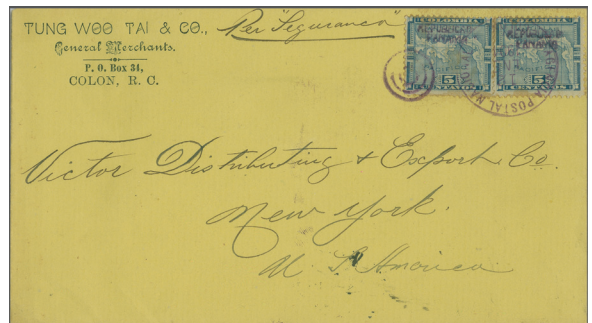 TUNG WOO TAI & CO.,
General Merchants.
P. O. Box 34,
COLON, R. C.
Per "Seguranca"
REPUBLICA DE
PANAMA
5 CENTAVOS 5
REPUBLICA DE
PANAMA
5 CENTAVOS 5
POSTAL
Victor Distributing & Export Co.
New York.
U. S. America